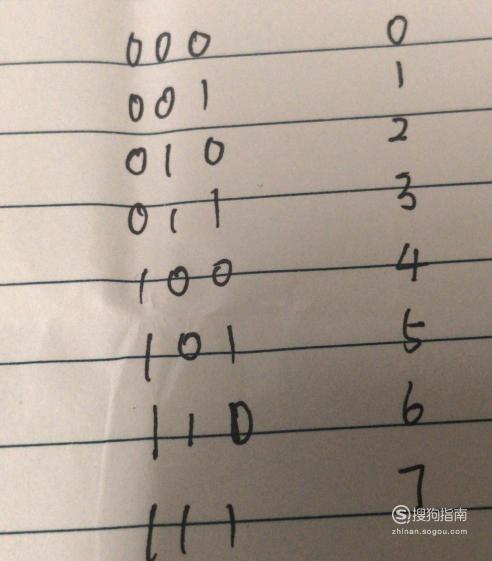 000 0
001 1
010 2
011 3
100 4
101 5
110 6
111 7
搜狗指南
zhinan.sogou.com